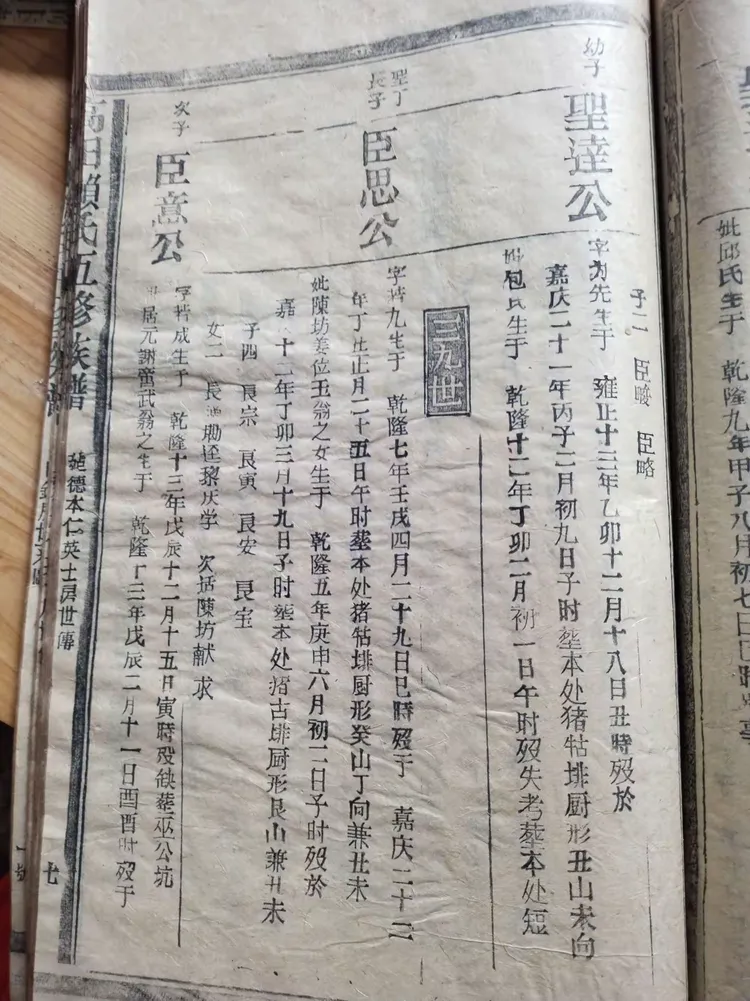 妣邱氏生于 乾隆九年甲子八月初七日巳時
子二 臣畯 臣略
幼子 聖達公
字为先生于 雍正十三年乙卯十二月十八日丑時殁於
嘉庆二十一年丙子二月初九日子时塟本处猪牯排厨形丑山未向
妣包氏生于 乾隆十二年丁卯二月初一日午时殁失考塟本处短
三九世
聖丁長子 臣思公
字 九生于 乾隆七年壬戌四月二十九日巳時殁于 嘉庆二十二
年丁丑正月二十五日午时塟本处猪牯排厨形癸山丁向兼丑未
妣陳坊姜位玉翁之女生于 乾隆五年庚申六月初二日子时殁於
嘉 十二年丁卯三月十九日子时塟本处 古排厨形艮山兼丑未
子四 良宗 良寅 良安 良宝
女二 長適 黎庆学 次适陳坊献求
次子 臣意公
字 成生于 乾隆十三年戊辰十二月十五日寅時殁 塟巫公坑
居元謝奮武翁之生于 乾隆十三年戊辰二月十一日酉时殁于
高田賴氏五修族譜
德本仁英士房世傳
七